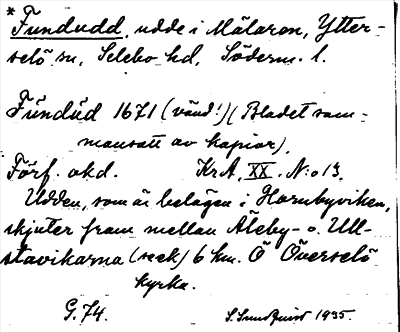 * Fundudd, udde i Mälaren, Ytter-
selö sn, Selebo hd, Söderm. l.
Fündüd 1671 (vänd!) (Bladet sam-
mansatt av kopior).
Förf. okd. KrA, XX. N:o 13.
Udden, som är belägen i Hornbyviken,
skjuter fram mellan Äleby- o. Ull-
stavikarna (seek) 6 km. Ö Överselö
kyrka.
G. 74. S. Sundquist 1935.